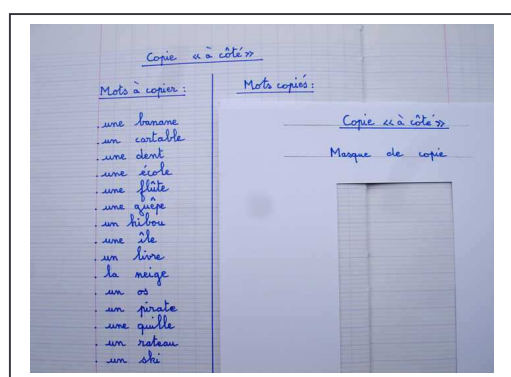 Copie «à côté»
Mots à copier :
Mots copiés :
. une banane
. un cartable
. une dent
. une école
. une flûte
. une guêpe
. un hibou
. une île
. un livre
. la neige
. un os
. un pirate
. une quille
. un rateau
. un ski
Copie «à côté»
Masque de copie